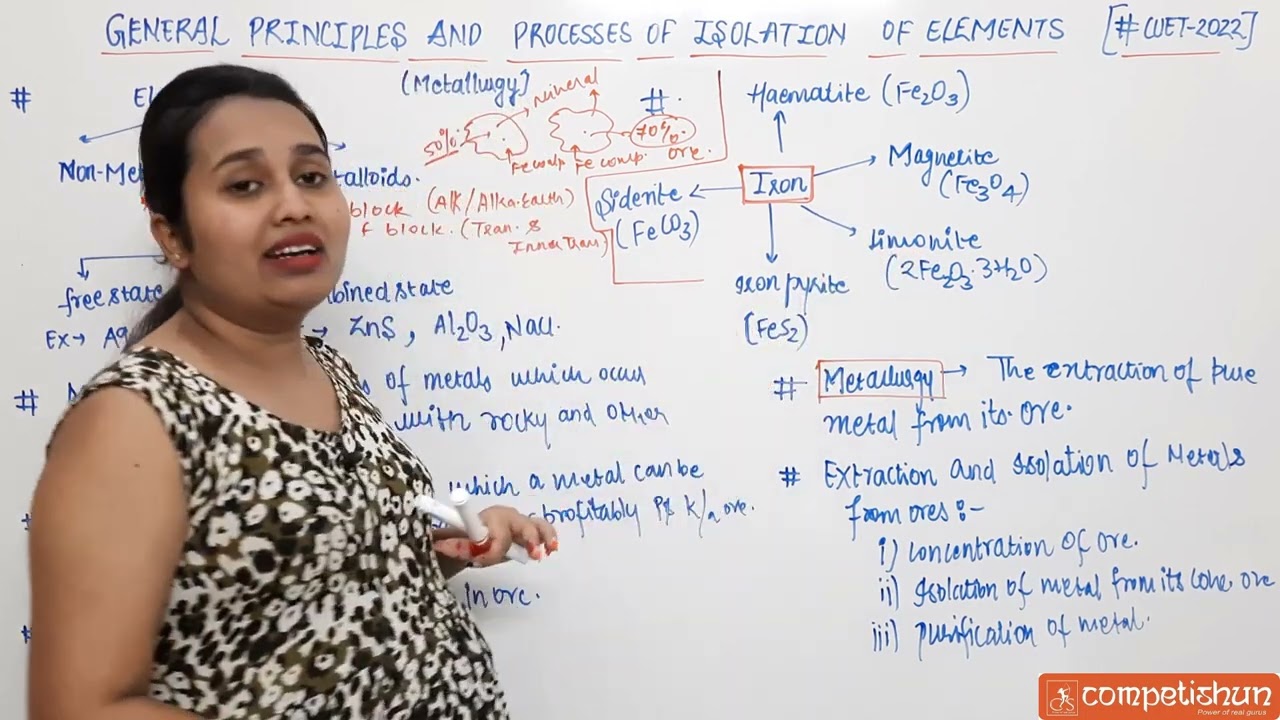 GENERAL PRINCIPLES AND PROCESSES OF ISOLATION OF ELEMENTS [#CUET-2022]
(Metallurgy)
#
El
Non-Met
talloids.
block (Alk/Alka.Earth)
f block. (Tran. &
InnerTran)
50%
mineral
Fe comp
Fe comp.
70%.
ore.
#.
free state
mbined state
Ex→ Ag
→ ZnS, Al2O3, NaCl.
#
s of metals which occur
with rocky and other
which a metal can be
profitably is k/a ore.
in ore.
Haematite (Fe2O3)
Magnetite
(Fe3O4)
Iron
Siderite
(FeCO3)
Limonite
(2Fe2O3.3H2O)
Iron pyrite
(FeS2)
# Metallurgy → The extraction of pure
metal from its ore.
# Extraction and Isolation of Metals
from ores :-
i) Concentration of ore.
ii) Isolation of metal from its conc. ore
iii) purification of metal.
competishun
Power of real gurus